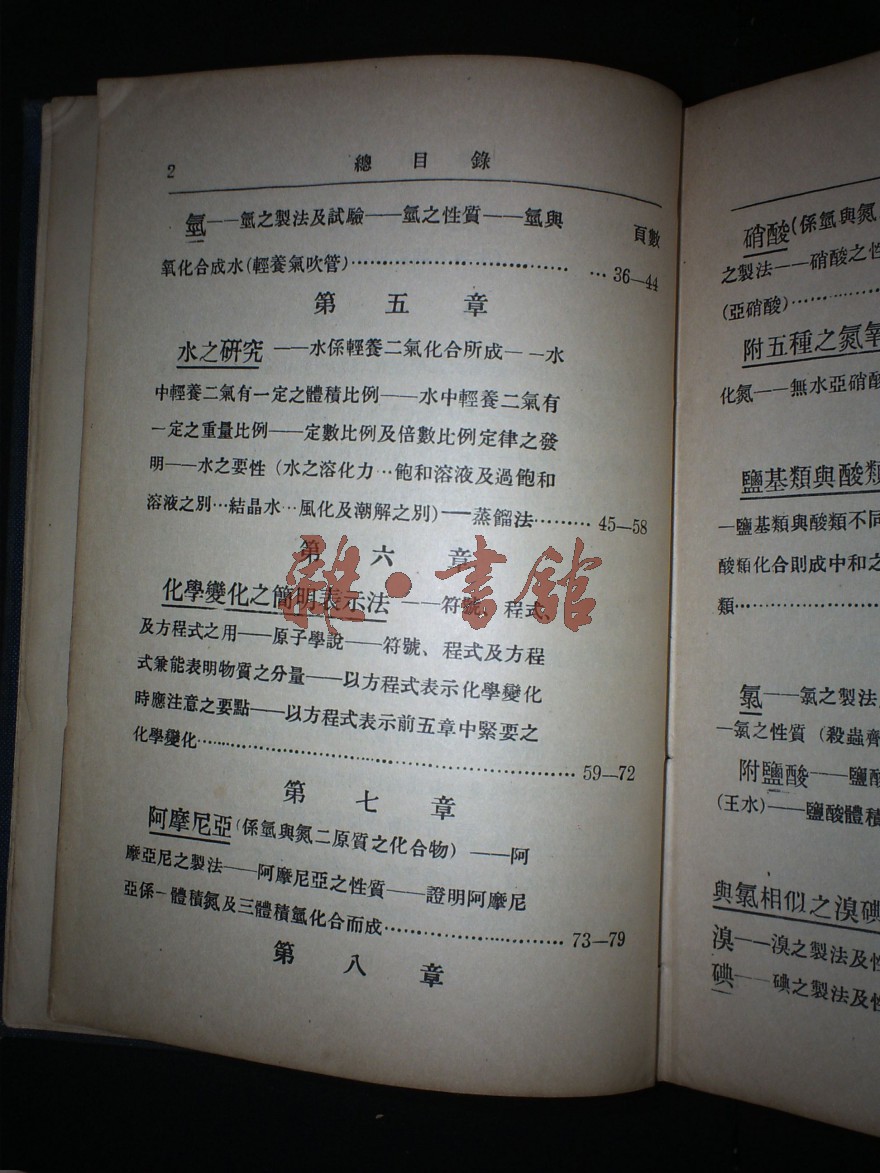 2
總目錄
頁數
氫——氫之製法及試驗——氫之性質——氫與
氧化合成水(輕養氣吹管)……………………………36—44
第五章
水之研究——水係輕養二氣化合所成——水
中輕養二氣有一定之體積比例——水中輕養二氣有
一定之重量比例——定數比例及倍數比例定律之發
明——水之要性(水之溶化力…飽和溶液及過飽和
溶液之別…結晶水…風化及潮解之別)——蒸餾法………45—58
第六章
化學變化之簡明表示法——符號、程式、
及方程式之用——原子學說——符號、程式及方程
式兼能表明物質之分量——以方程式表示化學變化
時應注意之要點——以方程式表示前五章中緊要之
化學變化……………………………………………59—72
第七章
阿摩尼亞(係氫與氮二原質之化合物)——阿
摩亞尼之製法——阿摩尼亞之性質——證明阿摩尼
亞係一體積氮及三體積氫化合而成…………………………73—79
第八章
雜·書館
硝酸(係氫與氮
之製法——硝酸之性
(亞硝酸)…………
附五種之氮氧
化氮——無水亞硝酸
鹽基類與酸類
—鹽基類與酸類不同
酸類化合則成中和之
類……………
氯——氯之製法
—氯之性質(殺蟲劑
附鹽酸——鹽酸
(王水)——鹽酸體積
與氯相似之溴碘
溴——溴之製法及性
碘——碘之製法及性